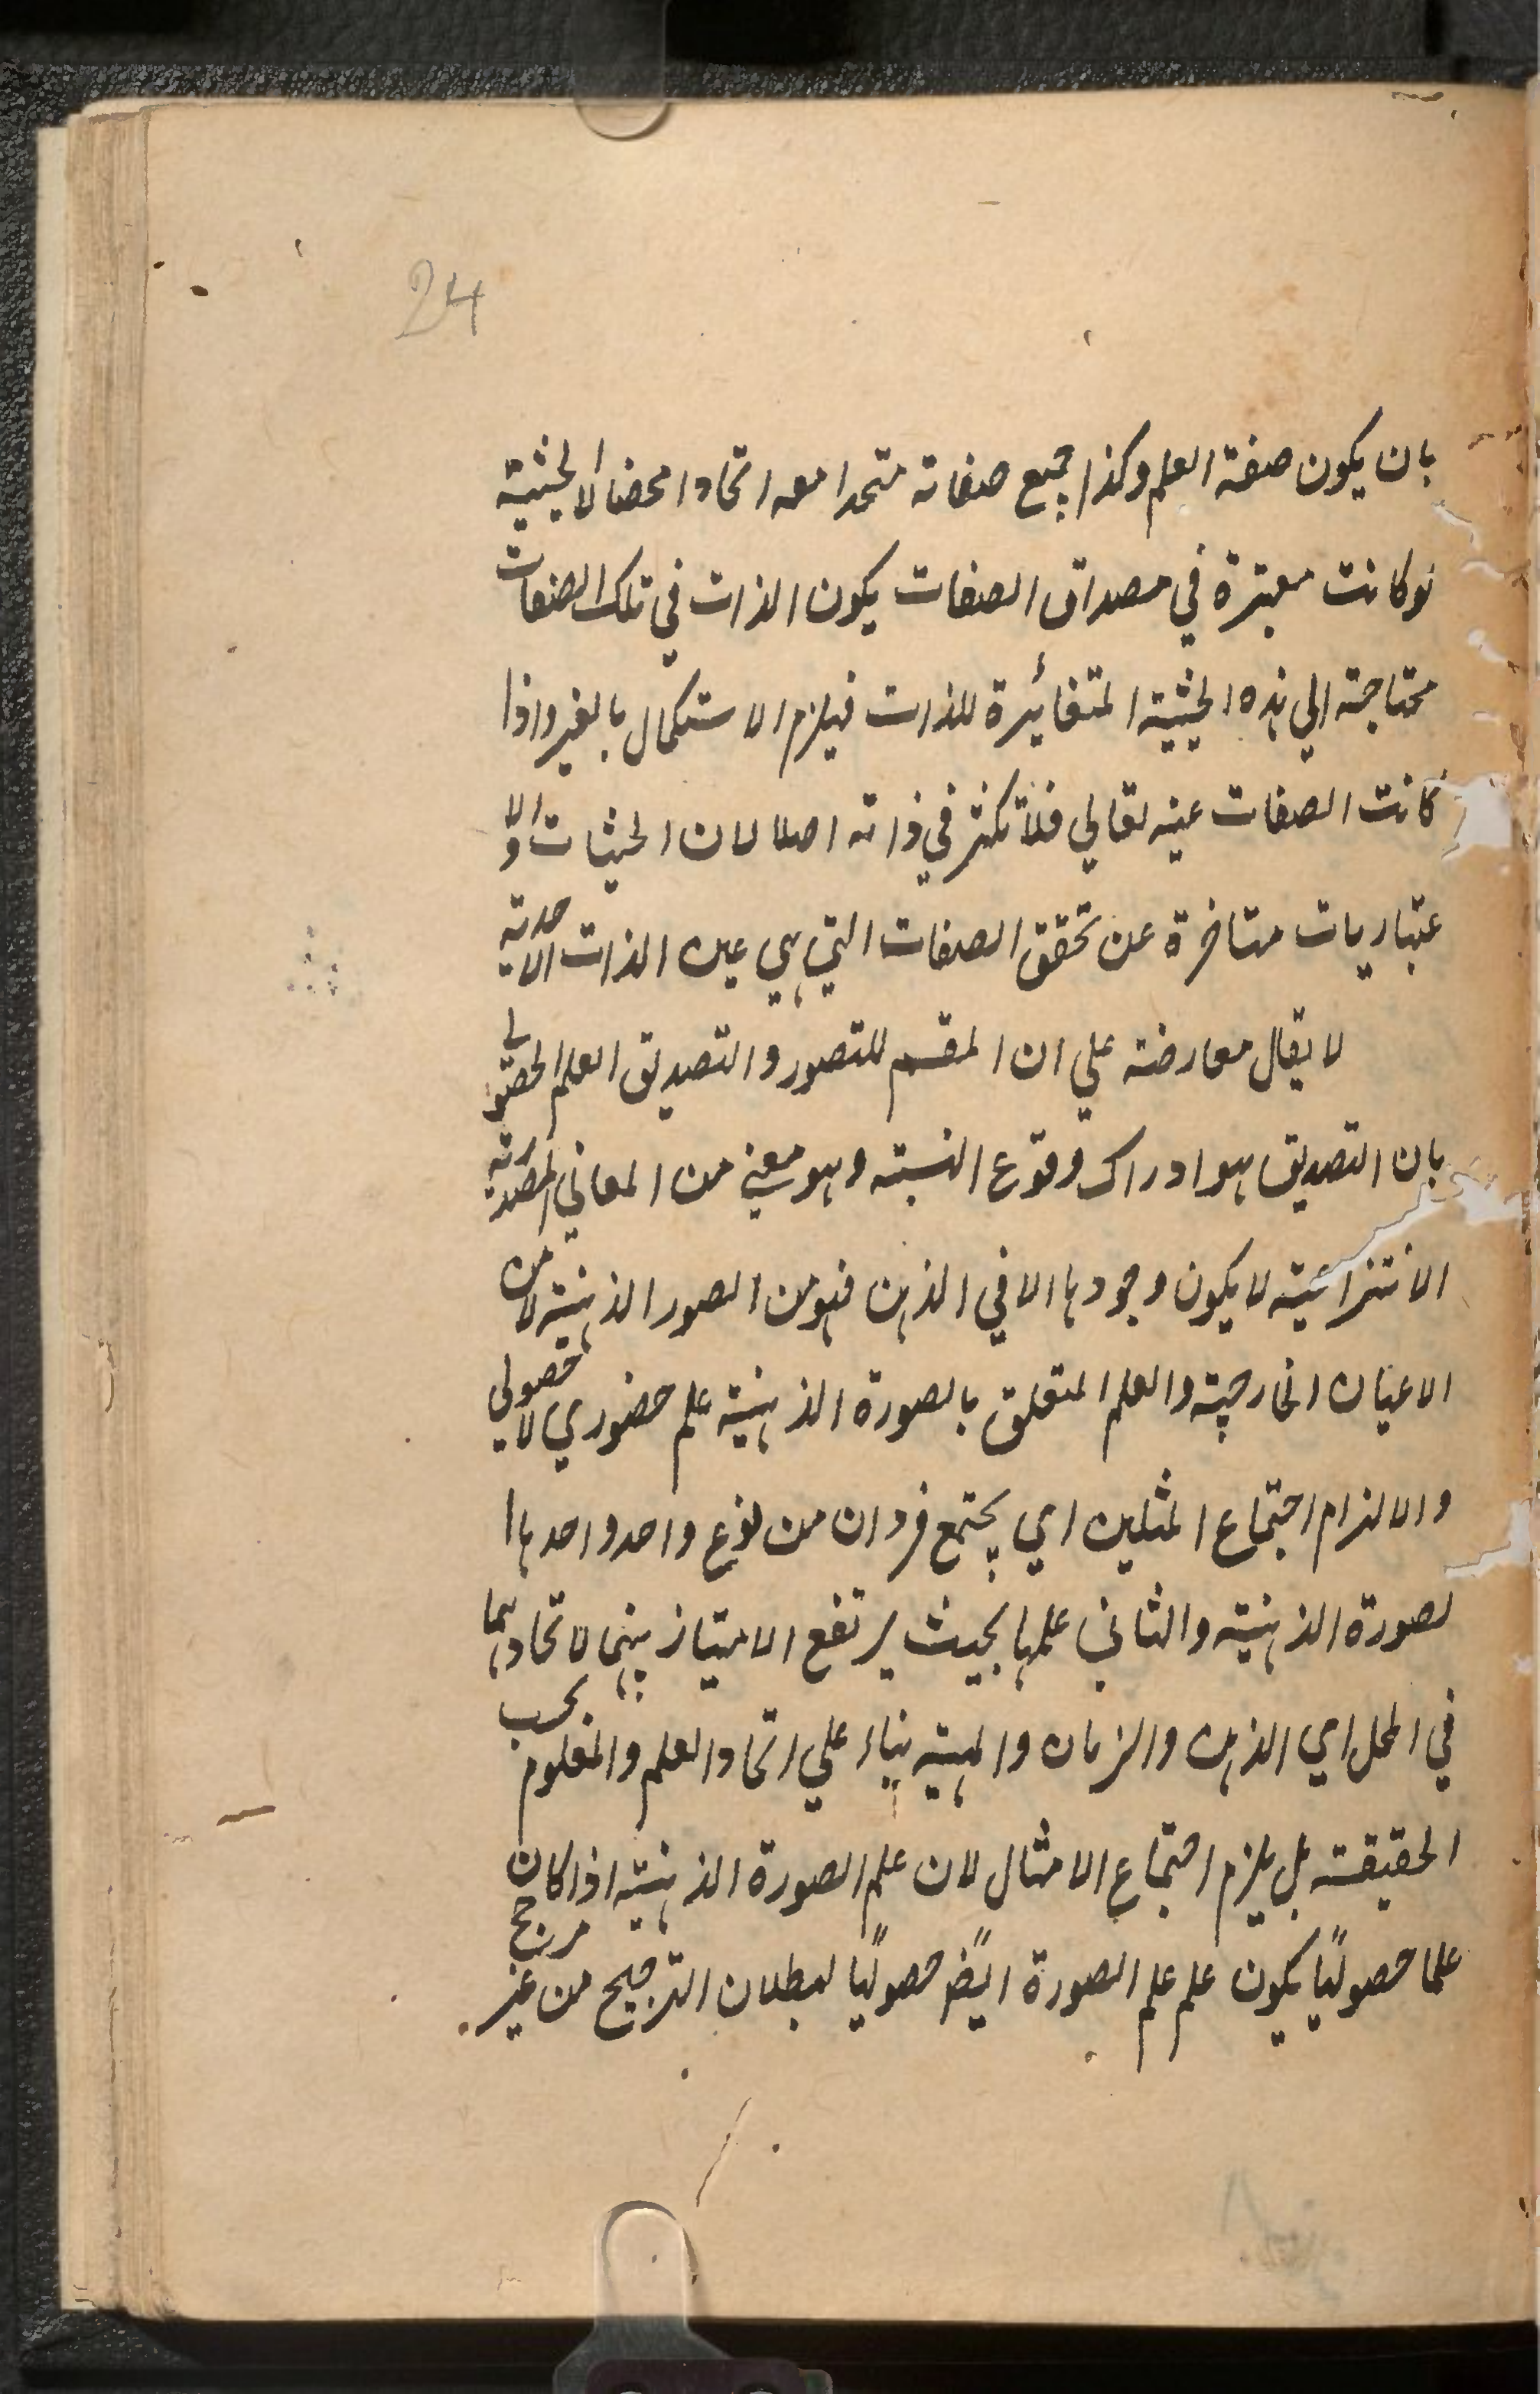 24
بان يكون صفة العلم وكذا جميع صفاته متحدا معه اتحادا محضا لا الحيثية
لوكانت معتبرة في مصداق الصفات يكون الذات في تلك الصفات
محتاجة الي هذه الحيثية المتغائيرة للذات فيلزم الاستكمال بالغير واذا
كانت الصفات عينه تعالي فلا تكثر في ذاته اصلا لان الحيثيات والا
عتباريات متاخرة عن تحقق الصفات التي هي عين الذات الاحدية
لا يقال معارضة علي ان المقسم للتصور والتصديق العلم الحصولي
بان التصديق هو ادراك وقوع النسبة وهو معني من المعاني المصدرية
الانتزائية لا يكون وجودها الا في الذهن فهو من الصور الذهنية لا من
الاعيان الخارجية والعلم المتعلق بالصورة الذهنية علم حضوري لا حصولي
والا لزام اجتماع المثلين اي يجتمع فردان من نوع واحد واحدها ا
لصورة الذهنية والثاني علمها بحيث يرتفع الامتياز بينهما لاتحادهما
في المحل اي الذهن والزمان والمهية بناء علي اتحاد العلم والمعلوم بحسب
الحقيقة بل يلزم اجتماع الامثال لان علم الصورة الذهنية اذا كان
علما حصوليًا يكون علم علم الصورة ايضًا حصوليًا لبطلان الترجيح من غير مرجح